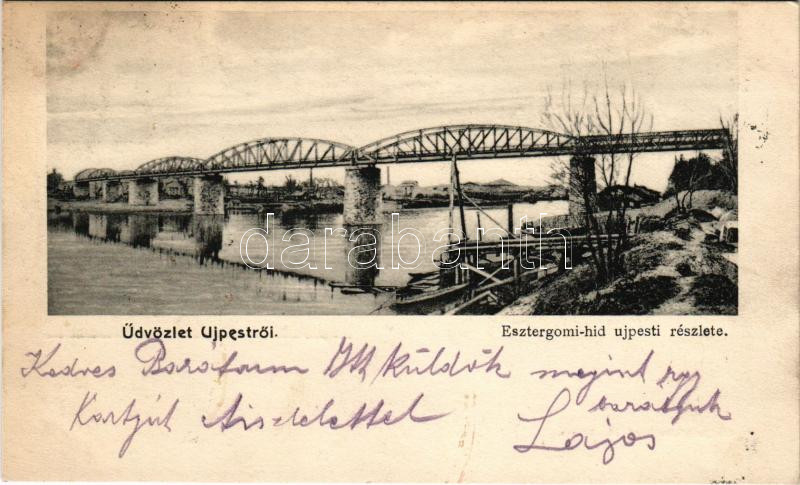 darabanth
Üdvözlet Ujpestről.
Esztergomi-hid ujpesti részlete.
Kedves Barátom Itt küldök megint egy
Kartyát tisztelettel baratjuk
Lajos